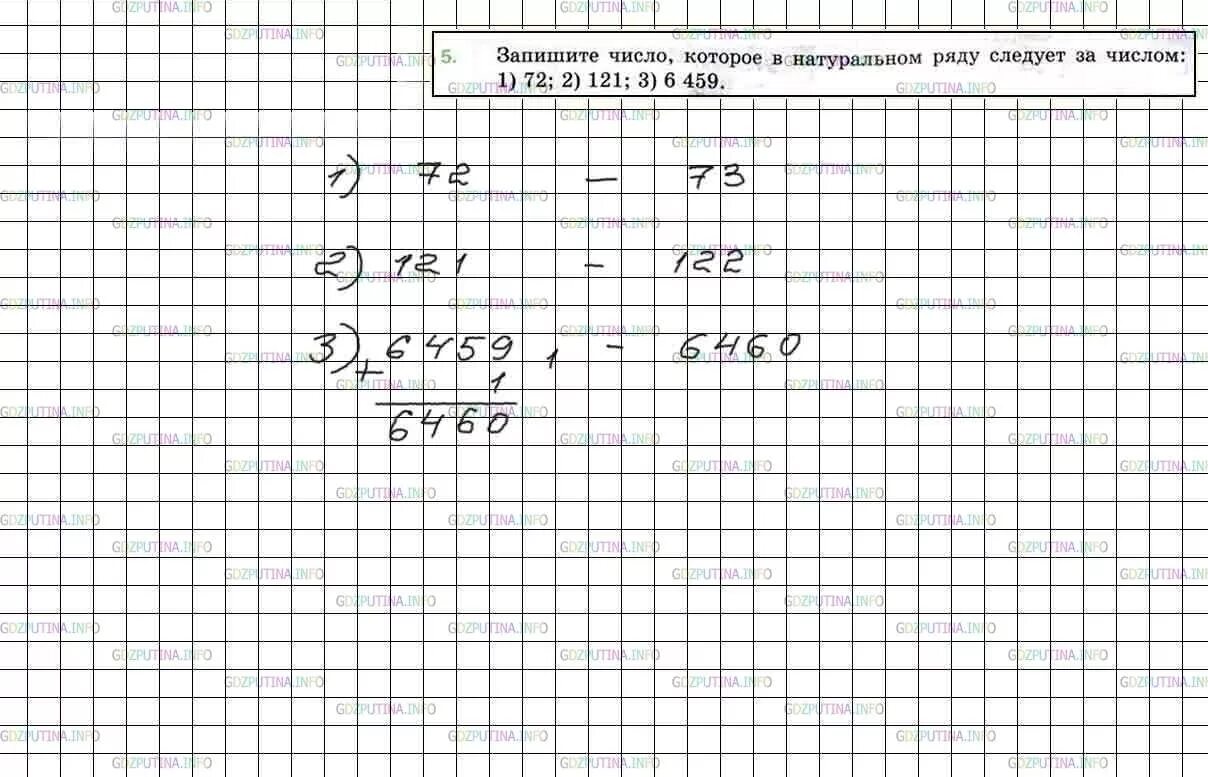 5. Запишите число, которое в натуральном ряду следует за числом:
1) 72; 2) 121; 3) 6 459.
1) 72 – 73
2) 121 – 122
3) 6459, – 6460
+ 1
6460
GDZPUTINA.INFO